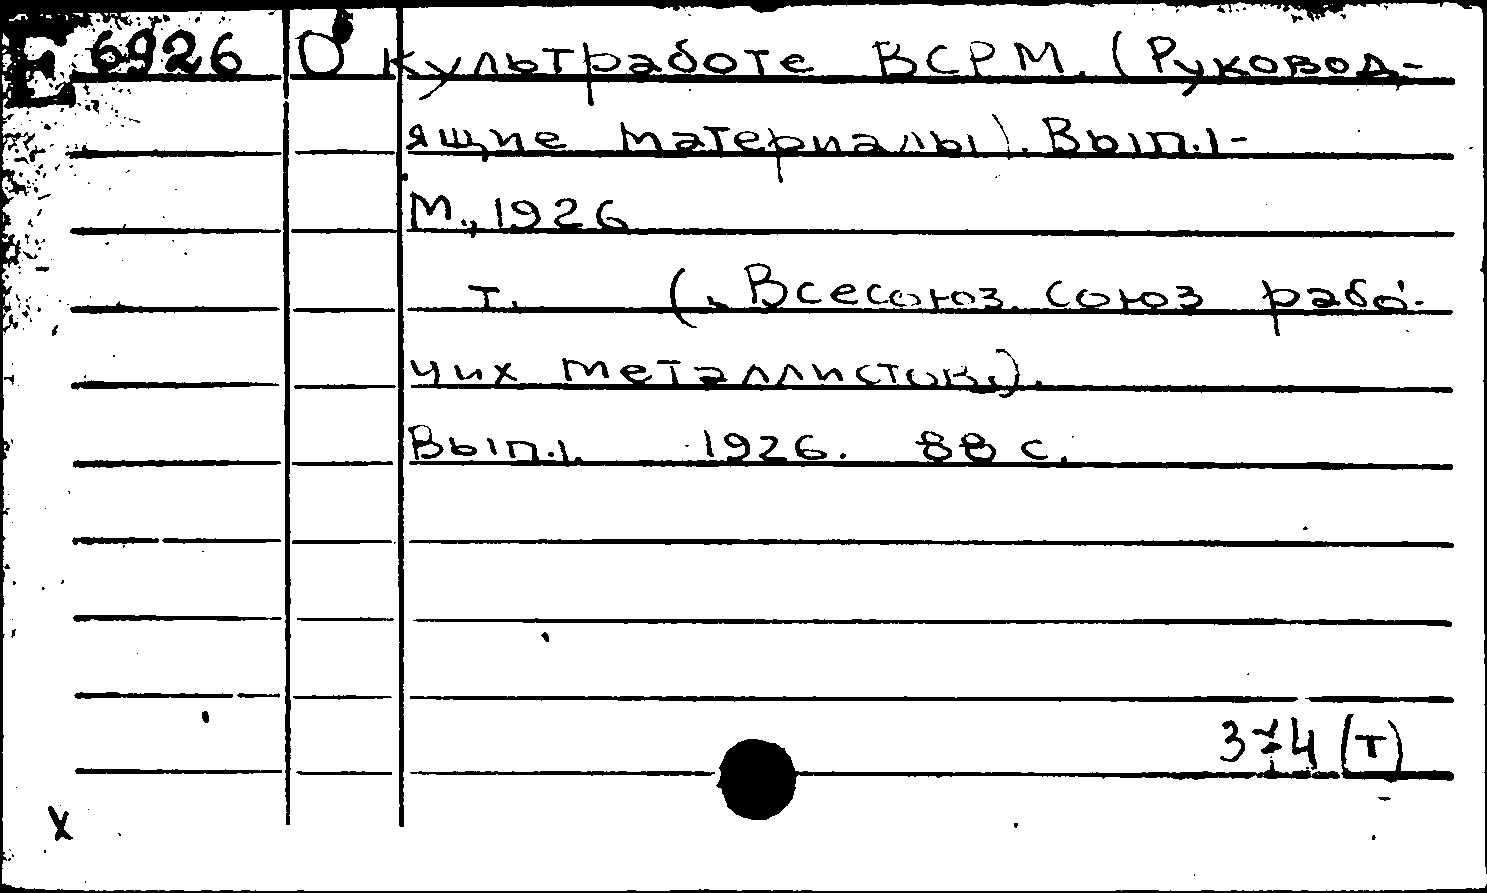 Е 6926 О культработе ВСРМ. (Руковод-
ящие материалы). Вып.1-
М., 1926
т. (Всесоюз. союз рабо-
чих металлистов).
Вып.1. 1926. 88 с.
374 (т)
х